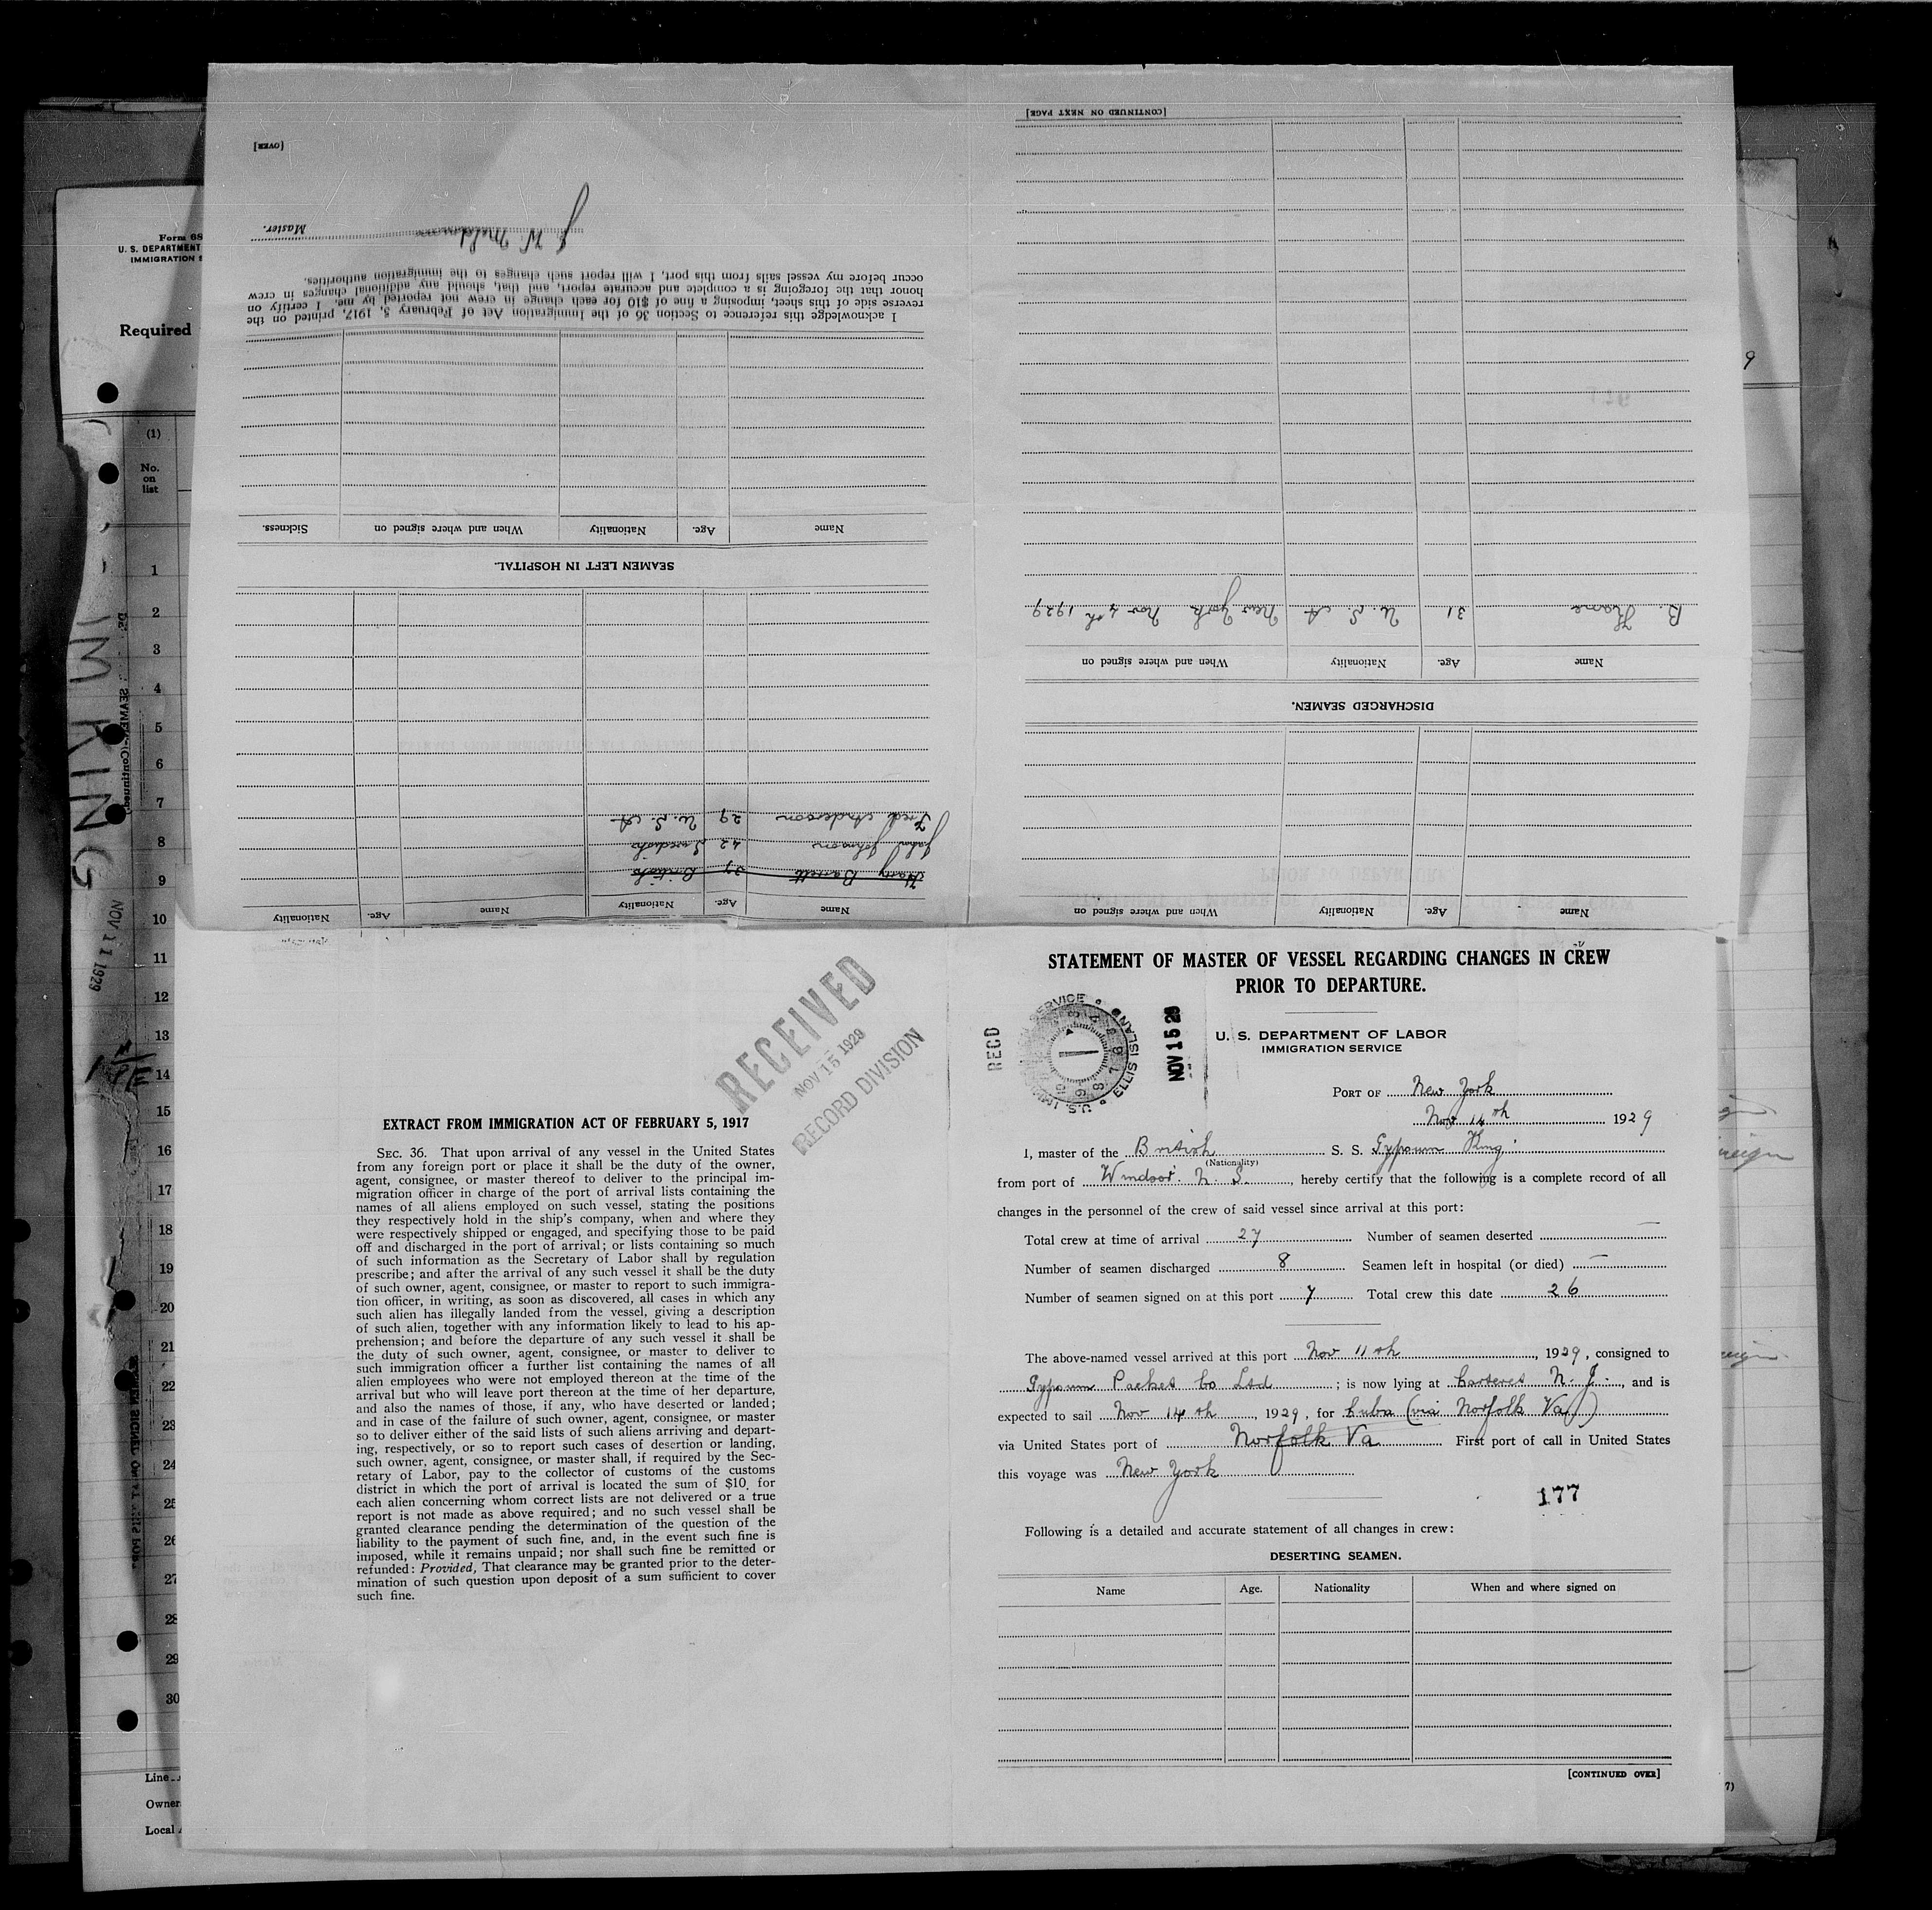 [CONTINUED ON NEXT PAGE]
B. Kane 31 U. S. A New York Nov 4th 1929
Name Age. Nationality When and where signed on
DISCHARGED SEAMEN.
Name Age. Nationality When and where signed on
[OVER]
J W
Master.
I acknowledge this reference to Section 36 of the Immigration Act of February 5, 1917, printed on the
reverse side of this sheet, imposing a fine of $10 for each change in crew not reported by me. I certify on
honor that the foregoing is a complete and accurate report, and that, should any additional changes in crew
occur before my vessel sails from this port, I will report such changes to the immigration authorities.
Name Age. Nationality When and where signed on Sickness.
SEAMEN LEFT IN HOSPITAL.
Fred Anderson 29 U. S. A
John Johnson 42 Swedish
Harry Barrett 27 British
Name Age. Nationality Name Age. Nationality
Form 68
U. S. DEPARTMENT
IMMIGRATION S
Required
(1)
No.
on
list
1
2
3
4
5
6
7
8
9
10
11
12
13
14
15
16
17
18
19
20
21
22
23
24
25
26
27
28
29
30
Line
Owner
Local
SEAMEN—(Continued)
UM KING
NOV 11 1929
RECEIVED
NOV 15 1929
RECORD DIVISION
EXTRACT FROM IMMIGRATION ACT OF FEBRUARY 5, 1917
SEC. 36. That upon arrival of any vessel in the United States
from any foreign port or place it shall be the duty of the owner,
agent, consignee, or master thereof to deliver to the principal im-
migration officer in charge of the port of arrival lists containing the
names of all aliens employed on such vessel, stating the positions
they respectively hold in the ship's company, when and where they
were respectively shipped or engaged, and specifying those to be paid
off and discharged in the port of arrival; or lists containing so much
of such information as the Secretary of Labor shall by regulation
prescribe; and after the arrival of any such vessel it shall be the duty
of such owner, agent, consignee, or master to report to such immigra-
tion officer, in writing, as soon as discovered, all cases in which any
such alien has illegally landed from the vessel, giving a description
of such alien, together with any information likely to lead to his ap-
prehension; and before the departure of any such vessel it shall be
the duty of such owner, agent, consignee, or master to deliver to
such immigration officer a further list containing the names of all
alien employees who were not employed thereon at the time of the
arrival but who will leave port thereon at the time of her departure,
and also the names of those, if any, who have deserted or landed;
and in case of the failure of such owner, agent, consignee, or master
so to deliver either of the said lists of such aliens arriving and depart-
ing, respectively, or so to report such cases of desertion or landing,
such owner, agent, consignee, or master shall, if required by the Sec-
retary of Labor, pay to the collector of customs of the customs
district in which the port of arrival is located the sum of $10 for
each alien concerning whom correct lists are not delivered or a true
report is not made as above required; and no such vessel shall be
granted clearance pending the determination of the question of the
liability to the payment of such fine, and, in the event such fine is
imposed, while it remains unpaid; nor shall such fine be remitted or
refunded: Provided, That clearance may be granted prior to the deter-
mination of such question upon deposit of a sum sufficient to cover
such fine.
STATEMENT OF MASTER OF VESSEL REGARDING CHANGES IN CREW
PRIOR TO DEPARTURE.
RECD
U.S. IMMIGRATION SERVICE ELLIS ISLAND
NOV 15 29
U. S. DEPARTMENT OF LABOR
IMMIGRATION SERVICE
PORT OF New York
Nov 14th 1929
I, master of the British S. S. Gypsum King
(Nationality)
from port of Windsor. N. S., hereby certify that the following is a complete record of all
changes in the personnel of the crew of said vessel since arrival at this port:
Total crew at time of arrival 27 Number of seamen deserted —
Number of seamen discharged 8 Seamen left in hospital (or died) —
Number of seamen signed on at this port 7 Total crew this date 26
The above-named vessel arrived at this port Nov 11th, 1929, consigned to
Gypsum Packet Co Ltd; is now lying at Carteret N. J., and is
expected to sail Nov 14th, 1929, for Cuba (via Norfolk Va)
via United States port of Norfolk Va First port of call in United States
this voyage was New York
177
Following is a detailed and accurate statement of all changes in crew:
DESERTING SEAMEN.
Name Age. Nationality When and where signed on
[CONTINUED OVER]